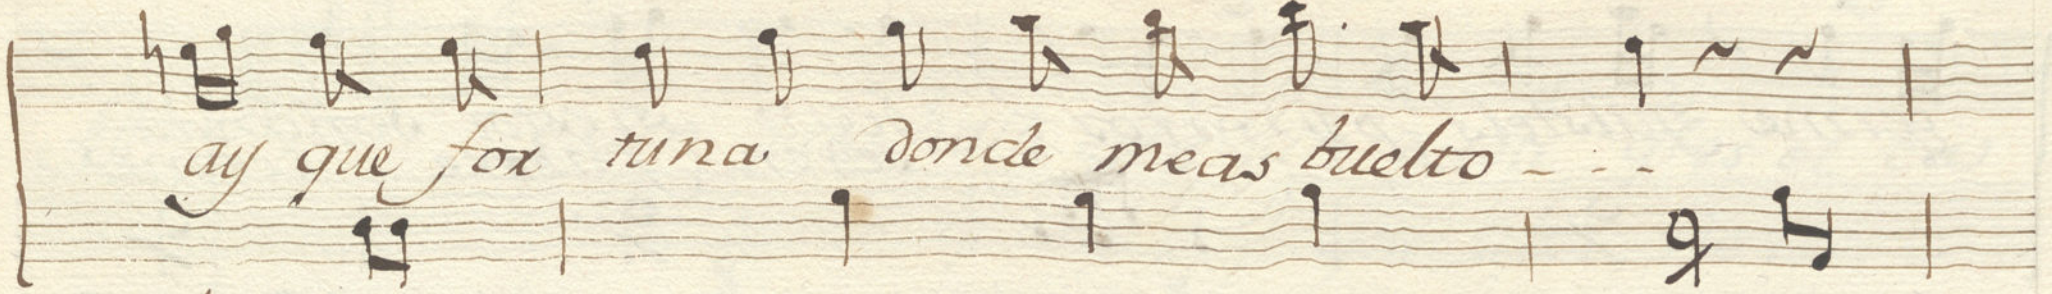 ay que for tuna donde meas buelto - - - -